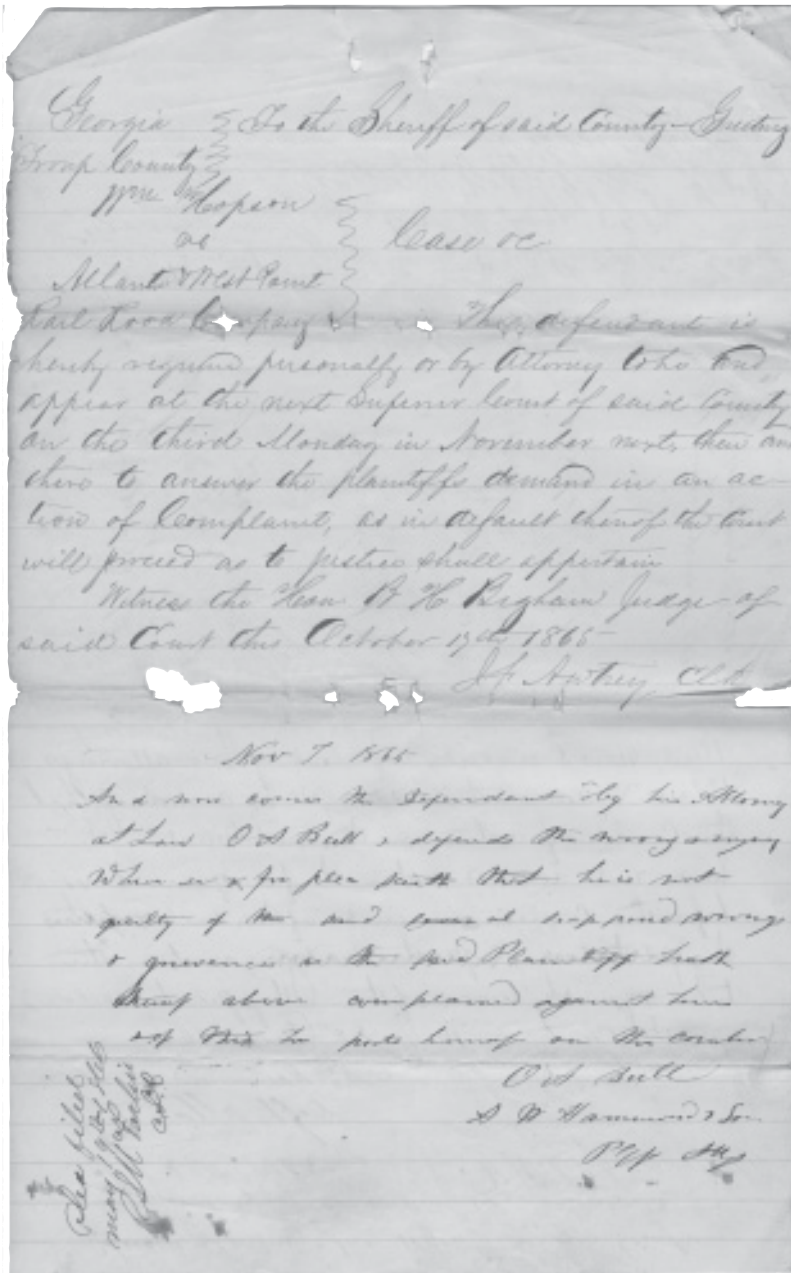 Georgia To the Sheriff of said County - Greeting
Troup County
Wm Hopson
vs
Case vc
Atlant & West Point
Rail Road Company The defendant is
hereby required personally or by Attorney to be and
appear at the next Superior Court of said County
on the third Monday in November next, then an
there to answer the plaintiffs demand in an ac-
tion of Complaint, as in default thereof the Court
will proceed as to justice shall appertain
Witness the Hon B H Bigham Judge of
said Court this October 17th 1865
J F Awtrey Clk
Nov 7. 1865
And now comes the Defendant by his Attorney
at Law O A Bull & defends the wrong & injury
When &c & for plea saith that he is not
guilty of the said supposed wrongs
& grievances as the said Plaintiff hath
thereof above complained against him
& of this he puts himself on the country
O A Bull
S W Hammond & Son
Plff Atty
Plea filed
may